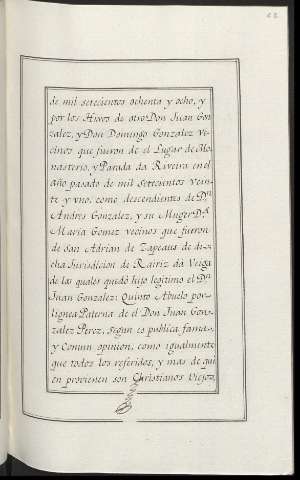 de mil setecientos ochenta y ocho, y
por los Hixos de otro Don Juan Gon
zalez, y Don Domingo Gonzalez Ve-
cinos que fueron de el Lugar de Mo-
nasterio, y Parada da Riveira en el
año pasado de mil Setecientos Vein-
te y vno, como descendientes de Dn
Andres Gonzalez, y su Muger Da
Maria Gomez vecinos que fueron
de San Adrian de Zapeaus de di-
cha Jurisdicion de Rairiz da Veiga
de las quales quedó hijo legitimo el Dn
Juan Gonzalez Quinto Abuelo por
lignea Paterna de el Don Juan Gon-
zalez Perez, segun es publica, fama,
y Comun opinion, como igualmente
que todos los referidos, y mas de qui
en provienen son Christianos Viejos,